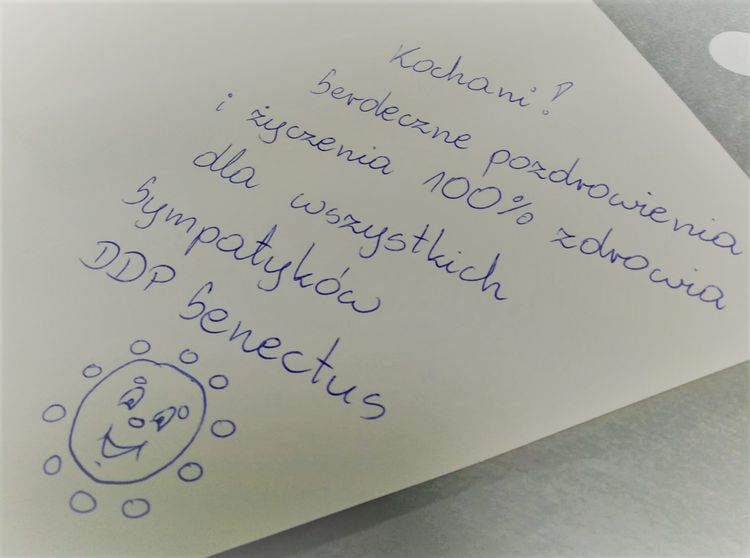 Kochani!
Serdeczne pozdrowienia
i życzenia 100% zdrowia
dla wszystkich
Sympatyków
DDP Senectus